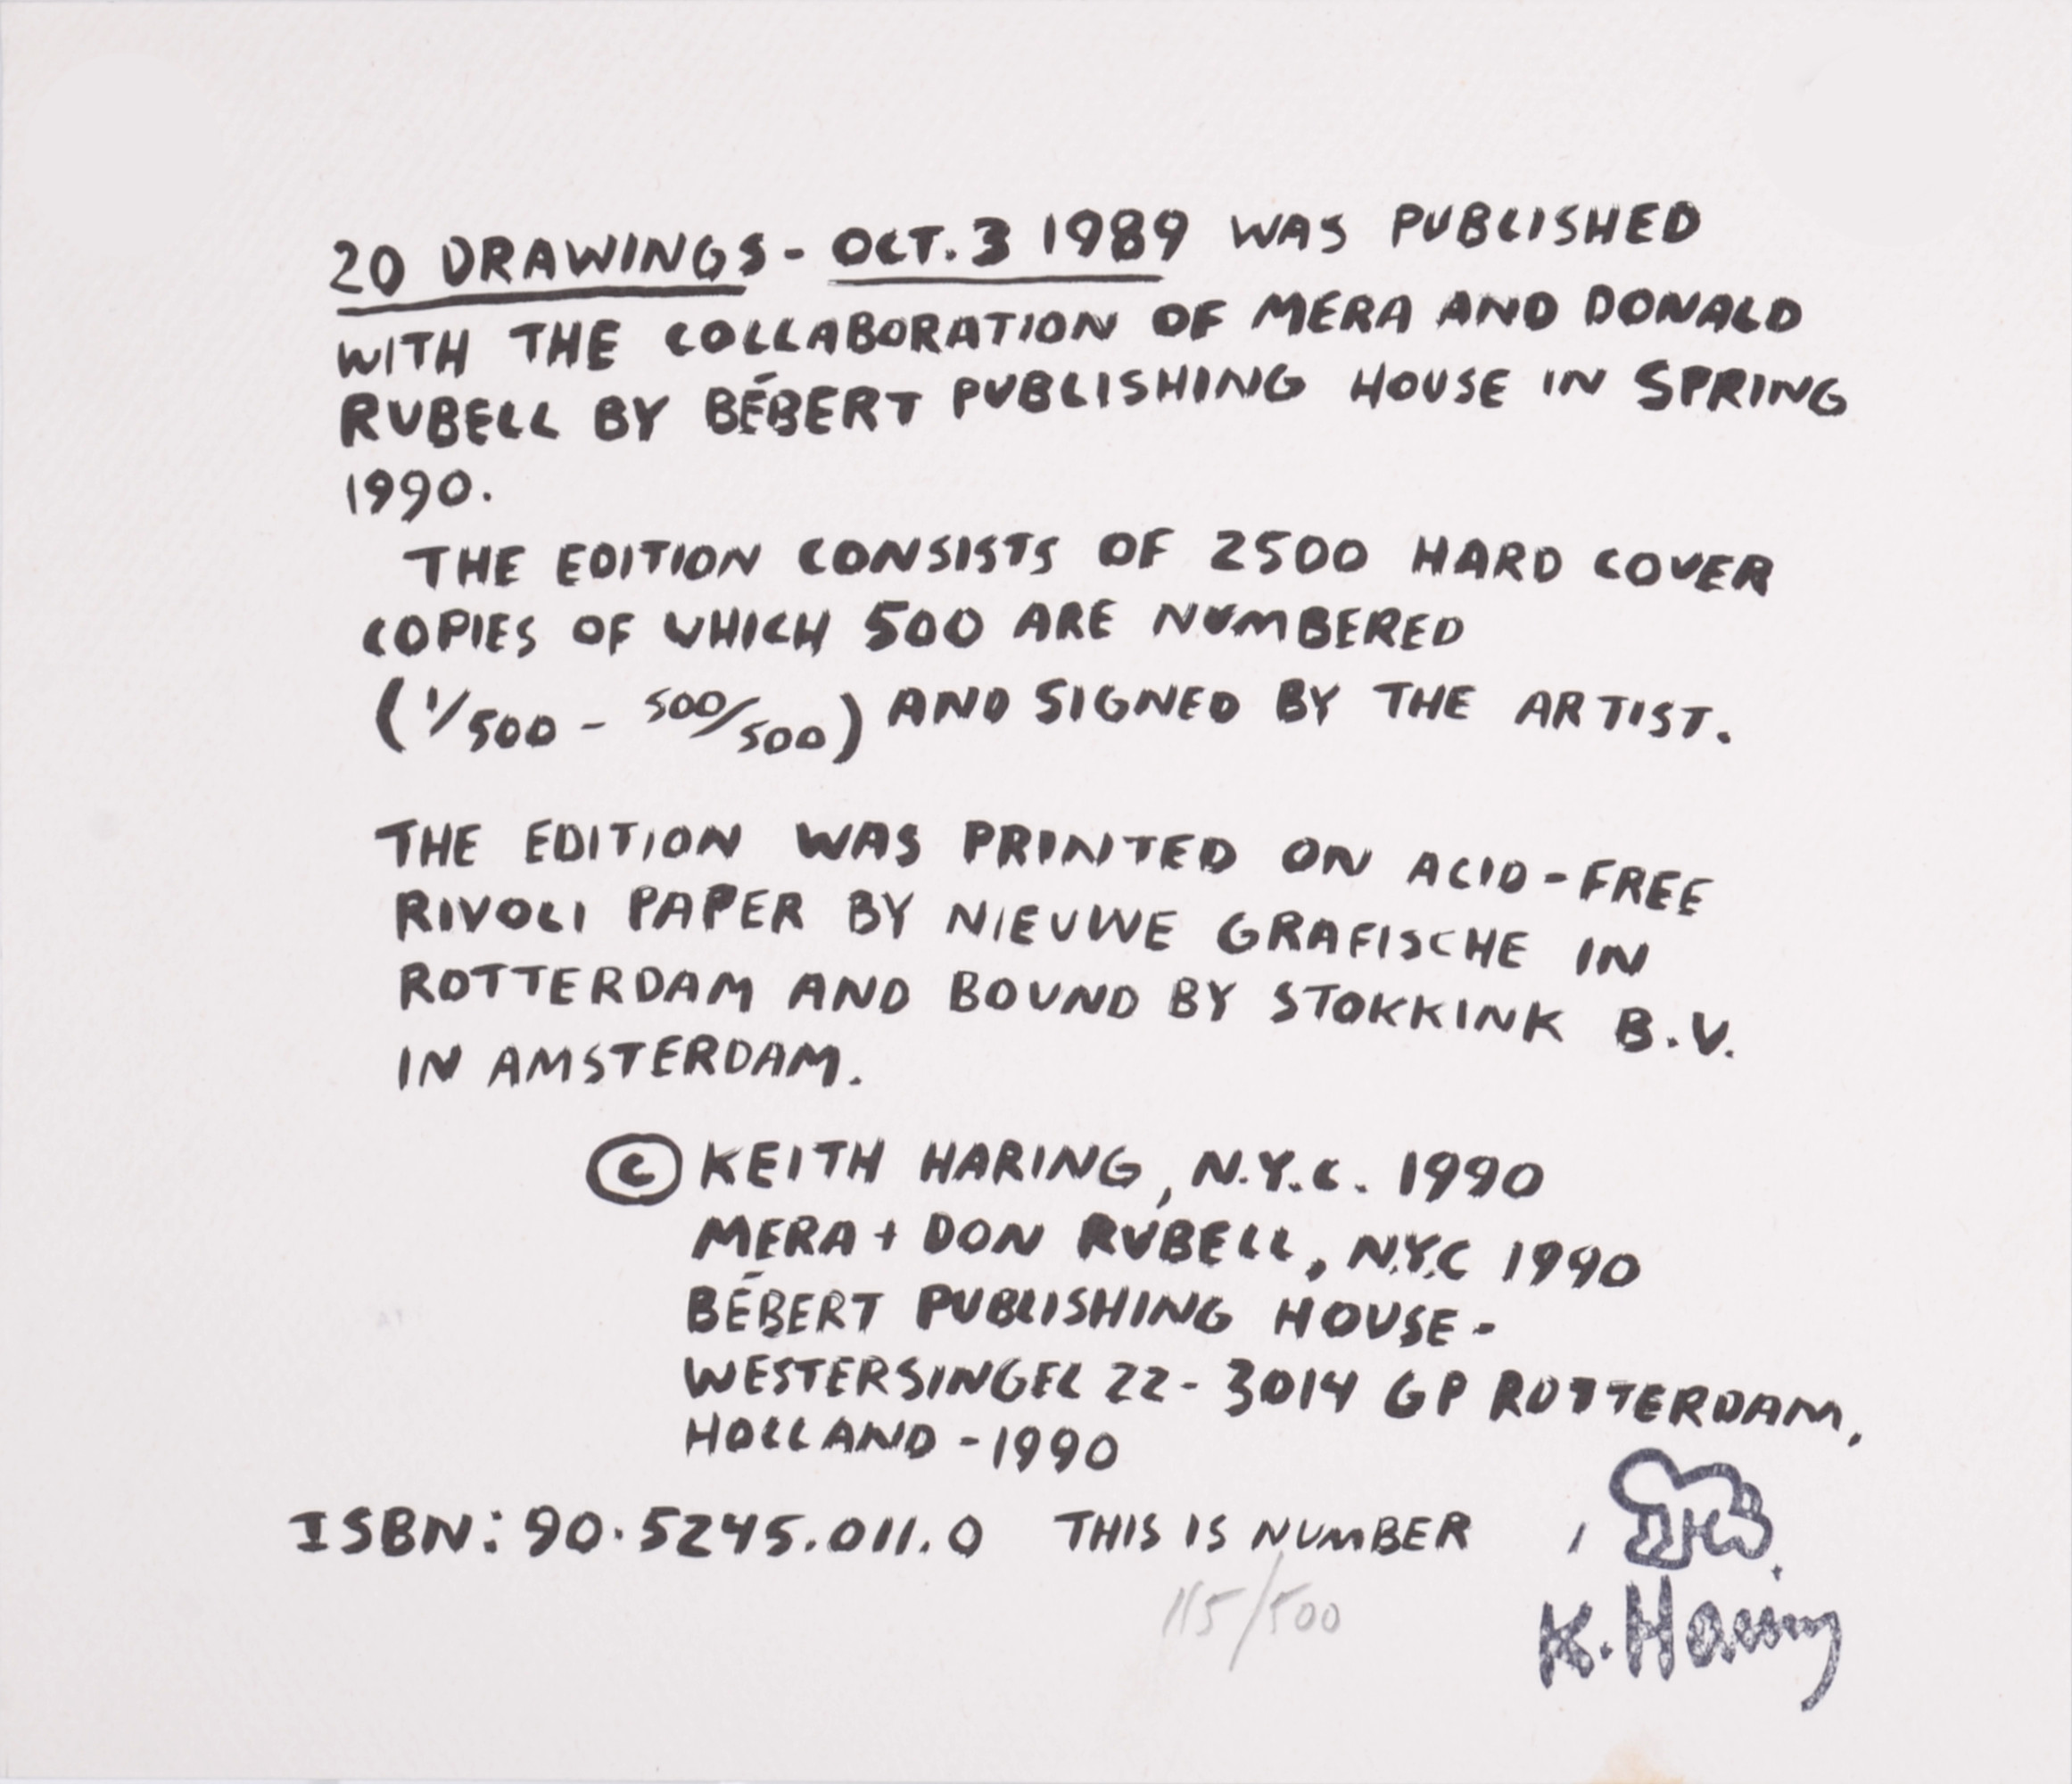 20 DRAWINGS - OCT. 3 1989 WAS PUBLISHED
WITH THE COLLABORATION OF MERA AND DONALD
RUBELL BY BÉBERT PUBLISHING HOUSE IN SPRING
1990.
THE EDITION CONSISTS OF 2500 HARD COVER
COPIES OF WHICH 500 ARE NUMBERED
(1/500 - 500/500) AND SIGNED BY THE ARTIST.
THE EDITION WAS PRINTED ON ACID-FREE
RIVOLI PAPER BY NIEUWE GRAFISCHE IN
ROTTERDAM AND BOUND BY STOKKINK B.V.
IN AMSTERDAM.
© KEITH HARING, N.Y.C. 1990
MERA + DON RUBELL, N.Y.C 1990
BÉBERT PUBLISHING HOUSE -
WESTERSINGEL 22 - 3014 GP ROTTERDAM,
HOLLAND - 1990
ISBN: 90.5245.011.0 THIS IS NUMBER
115/500
K. Haring